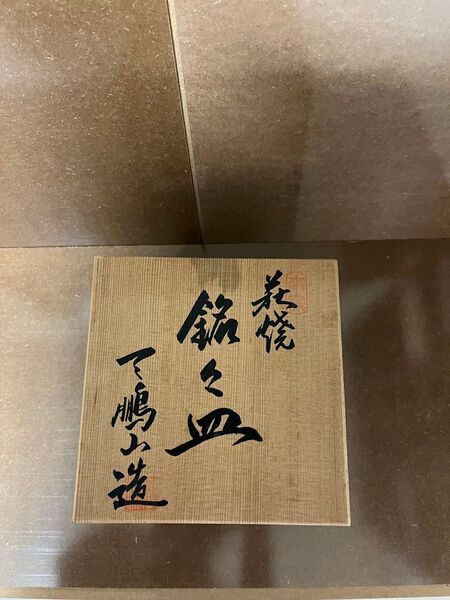 萩焼
銘々皿
天鵬山造